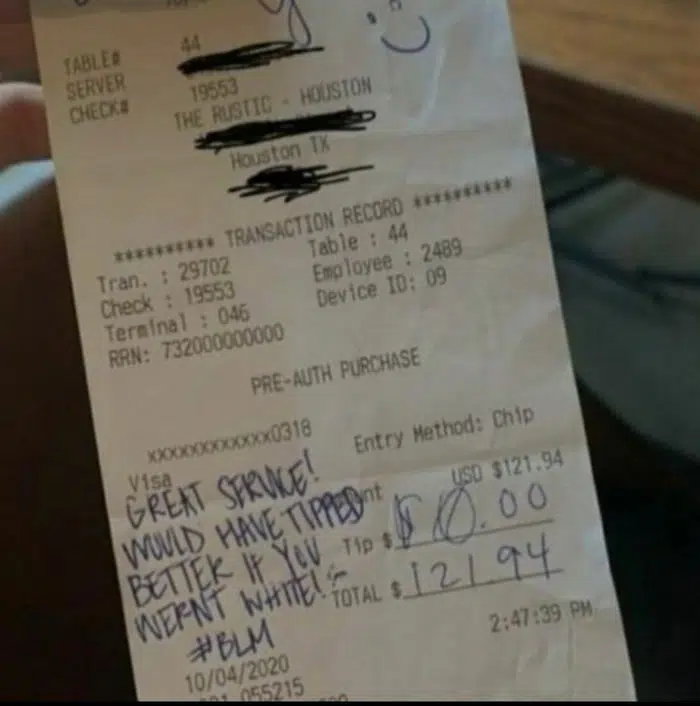 TABLE# 44
SERVER
CHECK# 19553
THE RUSTIC - HOUSTON
Houston TX
********** TRANSACTION RECORD **********
Tran. : 29702 Table : 44
Check : 19553 Employee : 2489
Terminal : 046 Device ID: 09
RRN: 732000000000
PRE-AUTH PURCHASE
xxxxxxxxxxxx0318
Visa Entry Method: Chip
USD $121.94
GREAT SERVICE!
WOULD HAVE TIPPED
BETTER IF YOU
WERNT WHITE!
#BLM
Tip $ .00
TOTAL $ 121.94
2:47:39 PM
10/04/2020
055215